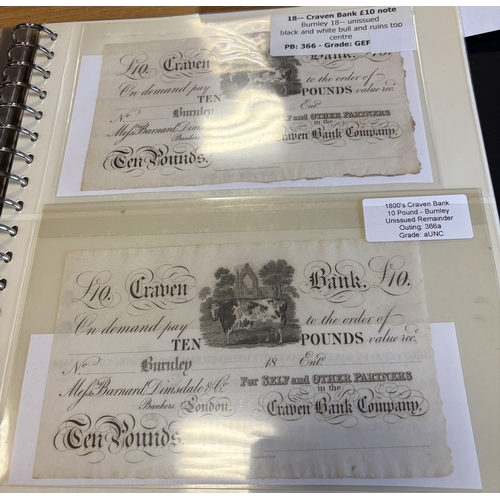 18-- Craven Bank £10 note
Burnley 18-- unissued
black and white bull and ruins top
centre
PB: 366 - Grade: GEF
£10. Craven
On demand pay to the order of
TEN POUNDS value recd.
No Burnley Entd.
Messrs. Barnard, Dimsdale & Co. For SELF and OTHER PARTNERS
Bankers, London. in the
Ten Pounds. Craven Bank Company.
1800's Craven Bank
10 Pound - Burnley
Unissued Remainder
Outing: 366a
Grade: aUNC
£10. Craven Bank. £10.
On demand pay to the order of
TEN POUNDS value recd.
No Burnley 18 Entd.
Messrs. Barnard, Dimsdale & Co. For SELF and OTHER PARTNERS
Bankers, London. in the
Ten Pounds. Craven Bank Company.